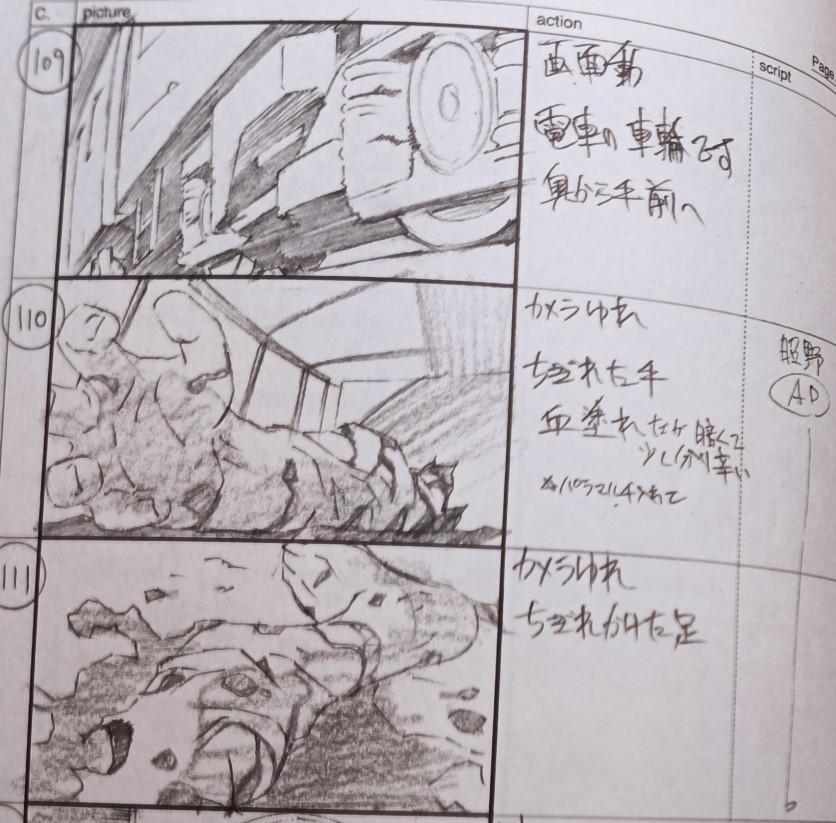 C.
picture
action
script
Page
109
画面動
電車の車輪です
奥から手前へ
110
カメラゆれ
ちぎれた手
血塗れだが暗くて
少し分り辛い
照野
AD
111
カメラゆれ
ちぎれかけた足